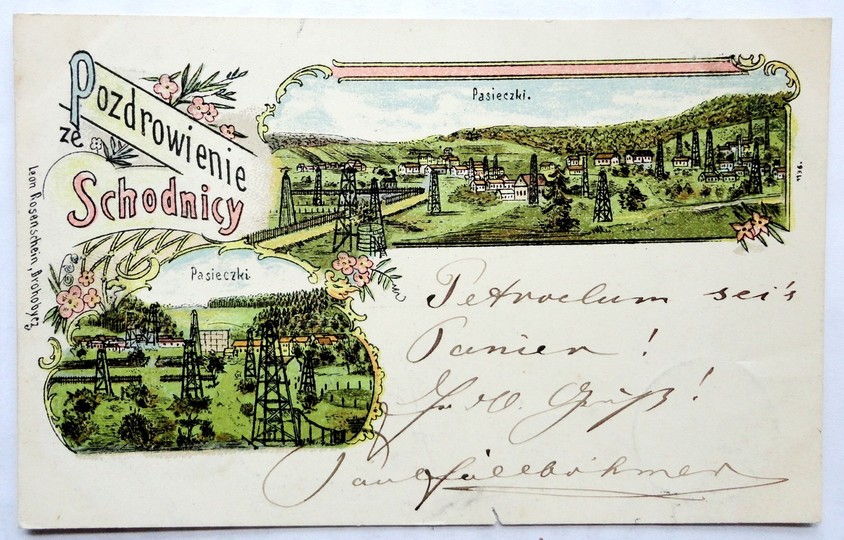 Pozdrowienie
ze
Schodnicy
Pasieczki.
Pasieczki
Leon Rosenschein, Drohobycz
Petroelum sei's
Panier!
Gruß!
Paul